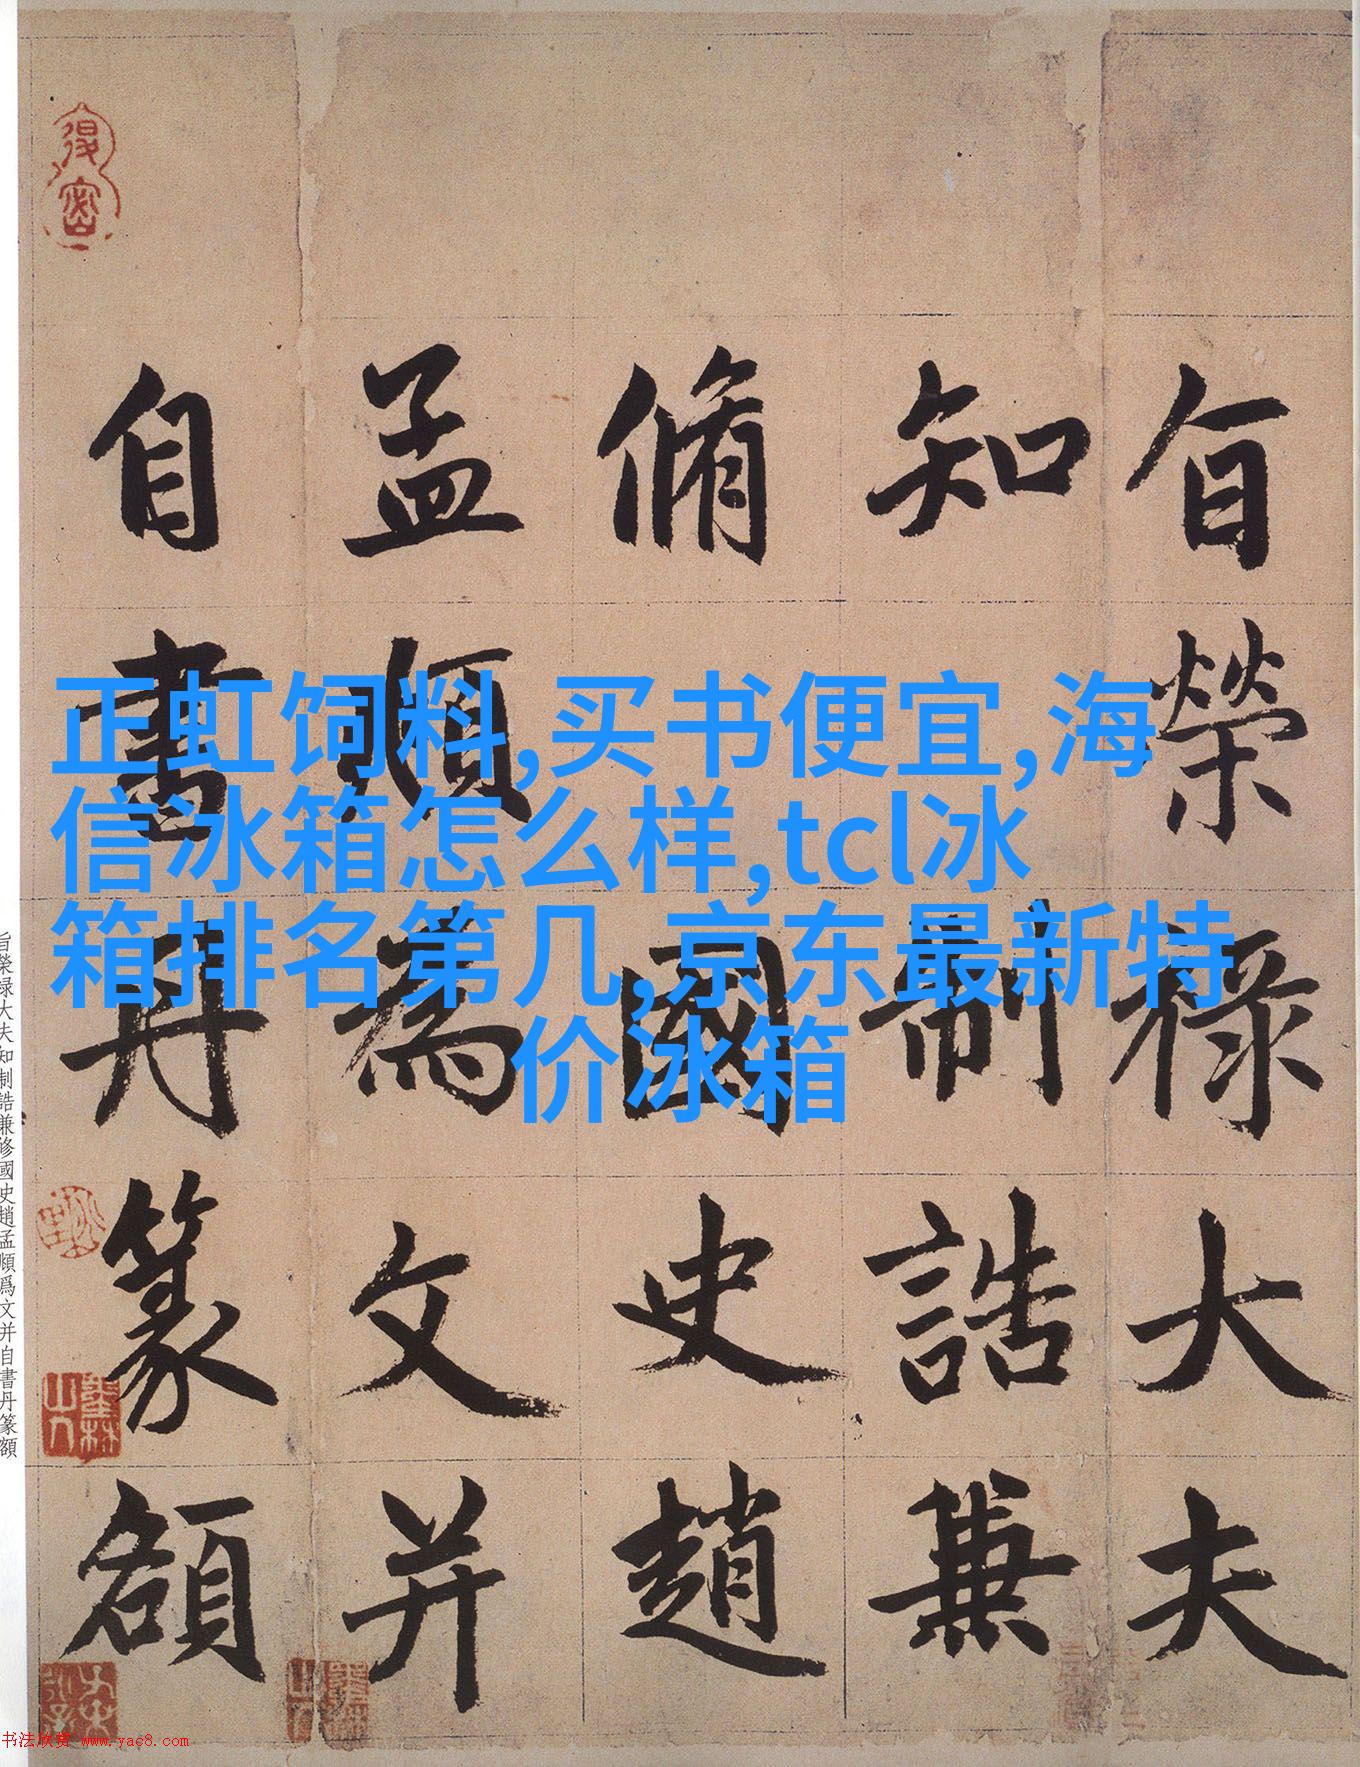 旨榮禄大夫
知制誥兼
脩國史趙
孟頫爲文并
自書丹篆額
正虹饲料,买书便宜,海
信冰箱怎么样,tcl冰
箱排名第几,京东最新特
价冰箱
旨榮禄大夫知制誥兼修國史趙孟頫爲文并自書丹篆額
书法欣赏 www.yac8.com